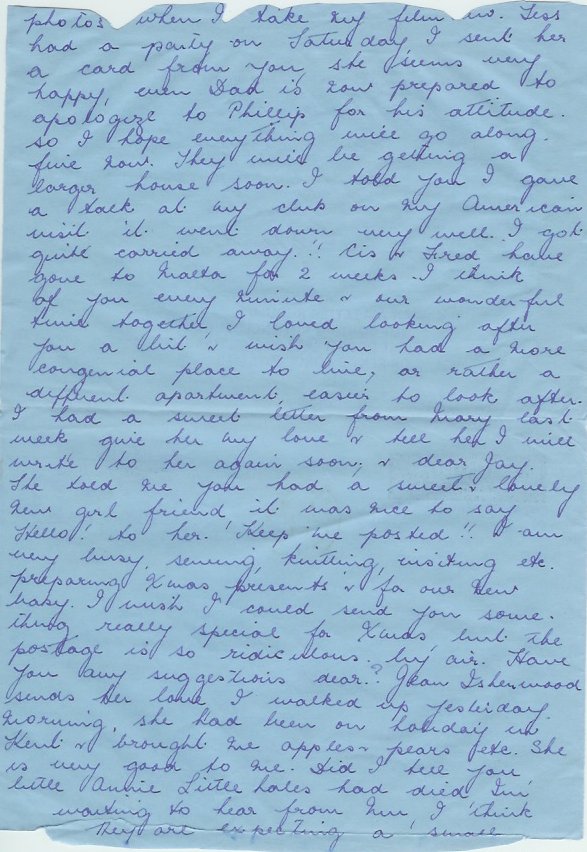 photos when I take my film in. Tess
had a party on Saturday I sent her
a card from you, she seems very
happy, even Dad is now prepared to
apologize to Phillip for his attitude.
so I hope everything will go along
fine now. They will be getting a
larger house soon. I told you I gave
a talk at my club on my American
visit it went down very well. I got
quite carried away.!! Cis & Fred have
gone to Malta for 2 weeks. I think
of you every minute & our wonderful
time together, I loved looking after
you a bit & wish you had a more
congenial place to live, or rather a
different apartment, easier to look after.
I had a sweet letter from Mary last
week give her my love & tell her I will
write to her again soon. & dear Jay.
She told me you had a sweet & lovely
new girl friend it was nice to say
"Hello"! to her. Keep me posted!! I am
very busy, sewing, knitting, visiting etc.
preparing Xmas presents & for our new
baby. I wish I could send you some-
thing really special for Xmas, but the
postage is so ridiculous. by air. Have
you any suggestions dear.? Jean Isherwood
sends her love I walked up yesterday
morning, she had been on holiday in
Kent & brought me apples & pears etc. She
is very good to me. Did I tell you
little Annie Littlehales had died I'm
waiting to hear from I think
they are expecting a small